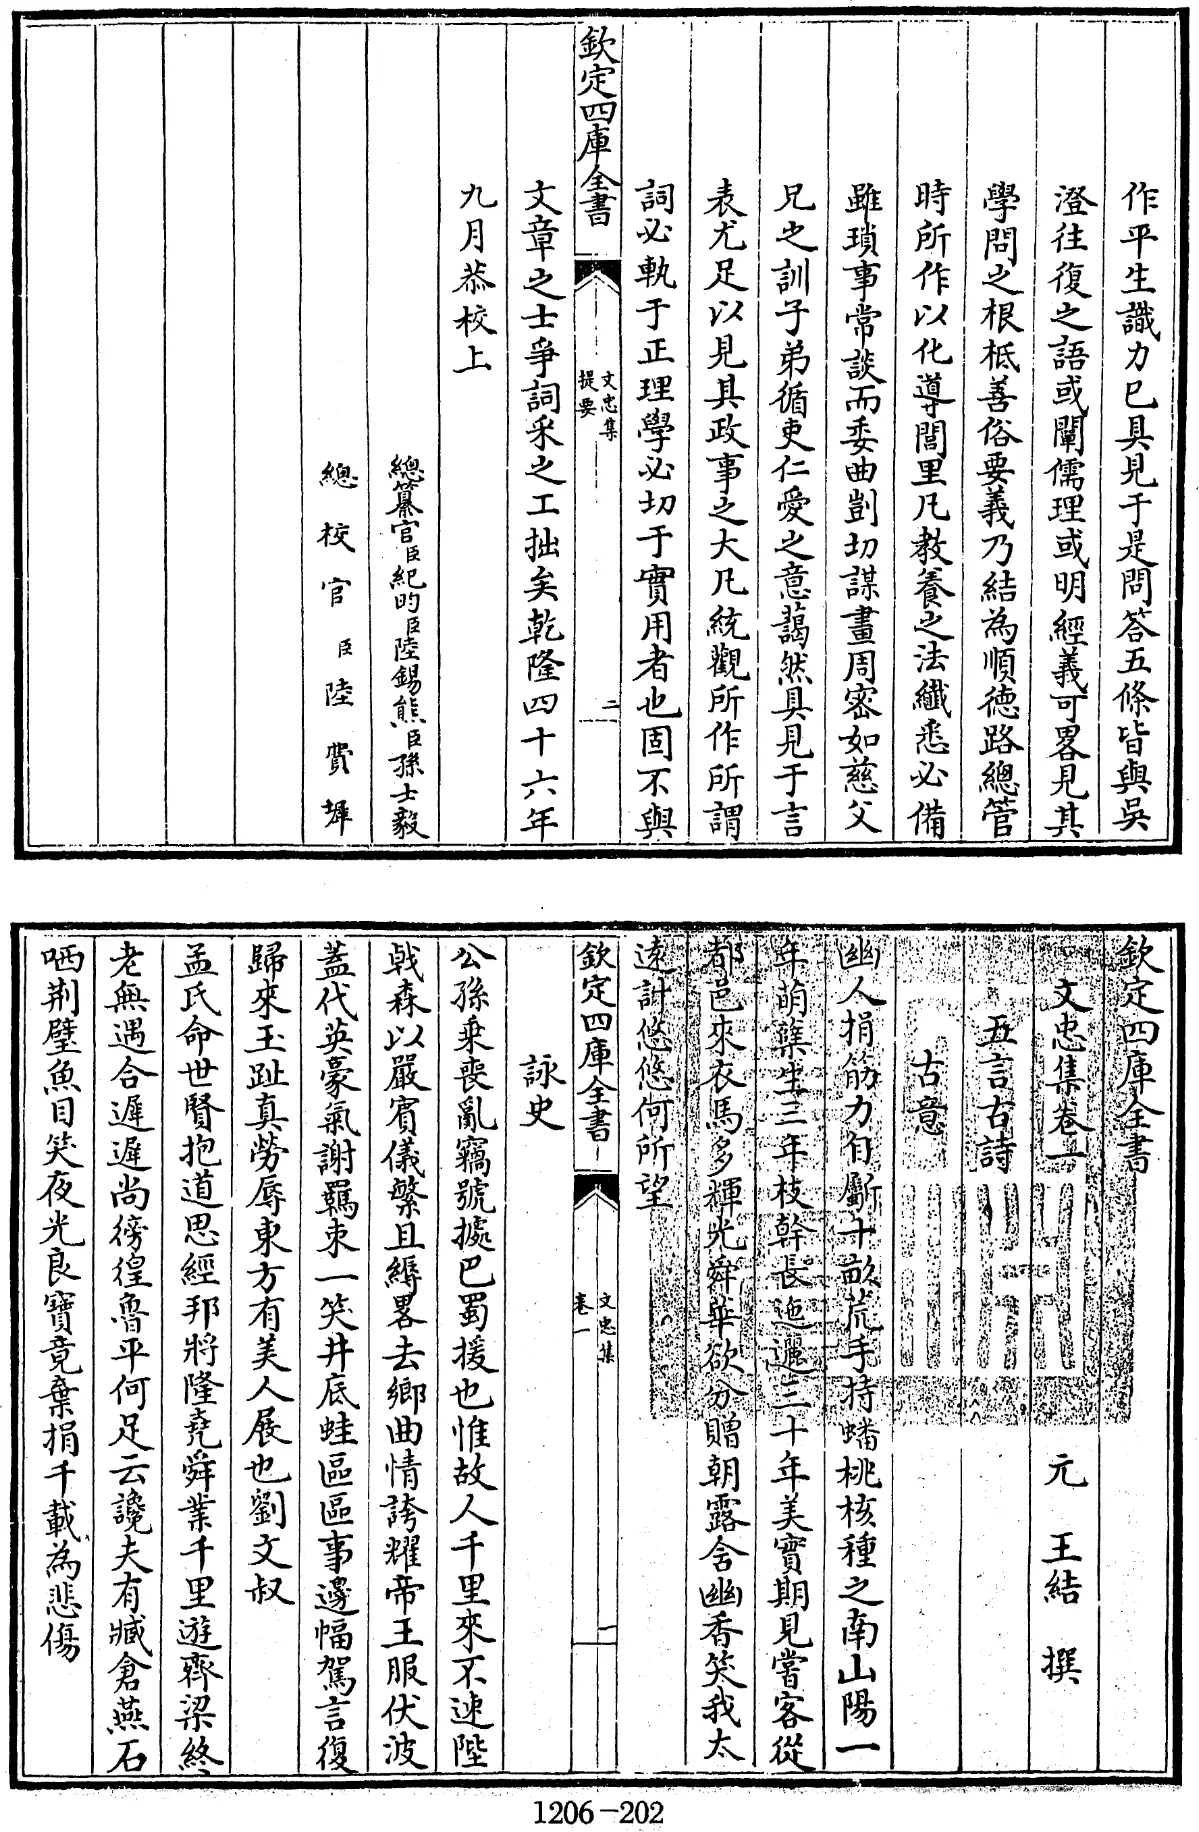 作平生識力已具見于是問答五條皆與吳
澄往復之語或闡儒理或明經義可畧見其
學問之根柢善俗要義乃結為順德路總管
時所作以化導閭里凡教養之法纖悉必備
雖瑣事常談而委曲剴切謀畫周密如慈父
兄之訓子弟循吏仁愛之意藹然具見于言
表尤足以見其政事之大凡統觀所作所謂
詞必軌于正理學必切于實用者也固不與
欽定四庫全書
文忠集
提要
二
文章之士爭詞采之工拙矣乾隆四十六年
九月恭校上
總纂官臣紀昀臣陸錫熊臣孫士毅
總校官臣陸費墀
欽定四庫全書
文忠集卷一
元 王結 撰
五言古詩
古意
幽人捐筋力自斸十畝荒手持蟠桃核種之南山陽一
年萌蘖生三年枝幹長迤邐三十年美實期見嘗客從
都邑來衣馬多輝光舜華欲分贈朝露含幽香笑我太
遠計悠悠何所望
欽定四庫全書
文忠集
卷一
一
詠史
公孫乗喪亂竊號據巴蜀援也惟故人千里來不速陛
戟森以嚴賓儀繁且縟畧去鄉曲情誇耀帝王服伏波
蓋代英豪氣謝羈束一笑井底蛙區區事邊幅駕言復
歸來玉趾真勞辱東方有美人展也劉文叔
孟氏命世賢抱道思經邦將隆堯舜業千里遊齊梁終
老無遇合遲遲尚徬徨魯平何足云讒夫有臧倉燕石
哂荆璧魚目笑夜光良寶竟棄捐千載為悲傷
1206-202